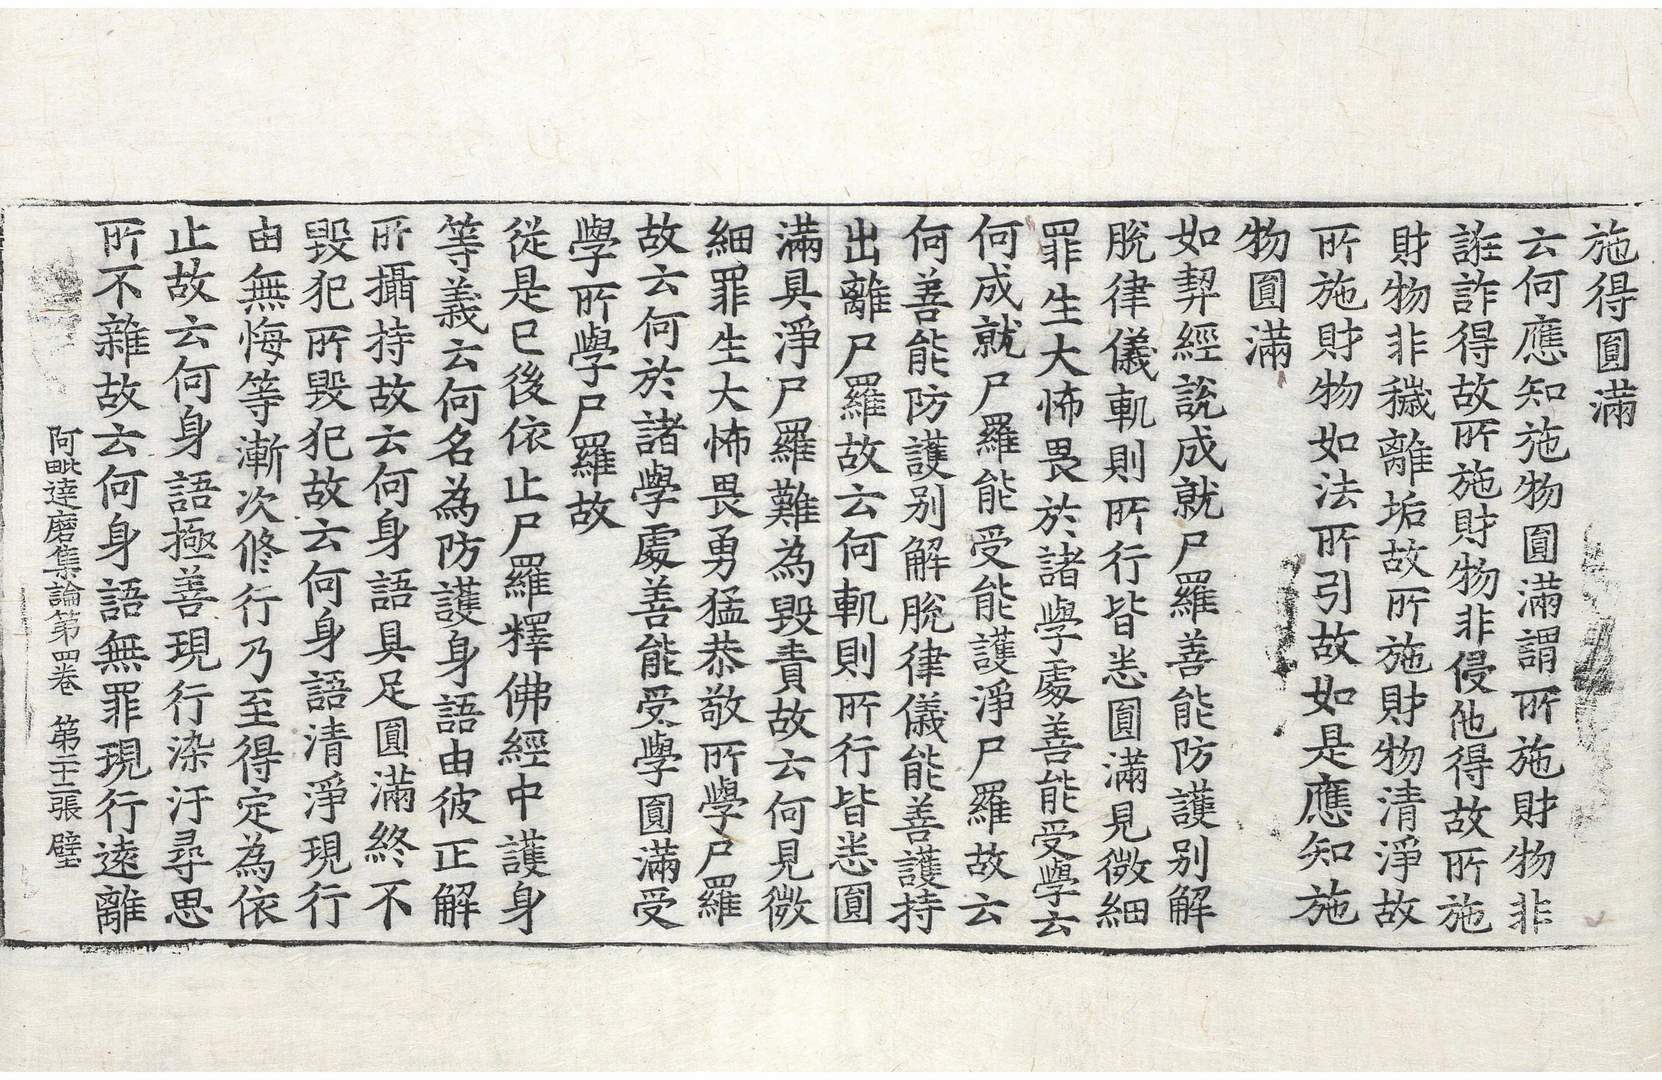 施得圓滿
云何應知施物圓滿謂所施財物非
誑詐得故所施財物非侵他得故所施
財物非穢離垢故所施財物清淨故
所施財物如法所引故如是應知施
物圓滿
如契經說成就尸羅善能防護別解
脫律儀軌則所行皆悉圓滿見微細
罪生大怖畏於諸學處善能受學云
何成就尸羅能受能護淨尸羅故云
何善能防護別解脫律儀能善護持
出離尸羅故云何軌則所行皆悉圓
滿具淨尸羅難為毀責故云何見微
細罪生大怖畏勇猛恭敬所學尸羅
故云何於諸學處善能受學圓滿受
學所學尸羅故
從是已後依止尸羅釋佛經中護身
等義云何名為防護身語由彼正解
所攝持故云何身語具足圓滿終不
毀犯所毀犯故云何身語清淨現行
由無悔等漸次修行乃至得定為依
止故云何身語極善現行染汙尋思
所不雜故云何身語無罪現行遠離
阿毗達磨集論第四卷 第二十二張 璧